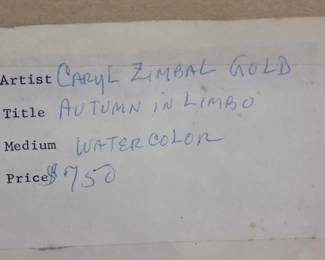 Artist CARYL ZIMBAL GOLD
Title AUTUMN IN LIMBO
Medium WATERCOLOR
Price $750